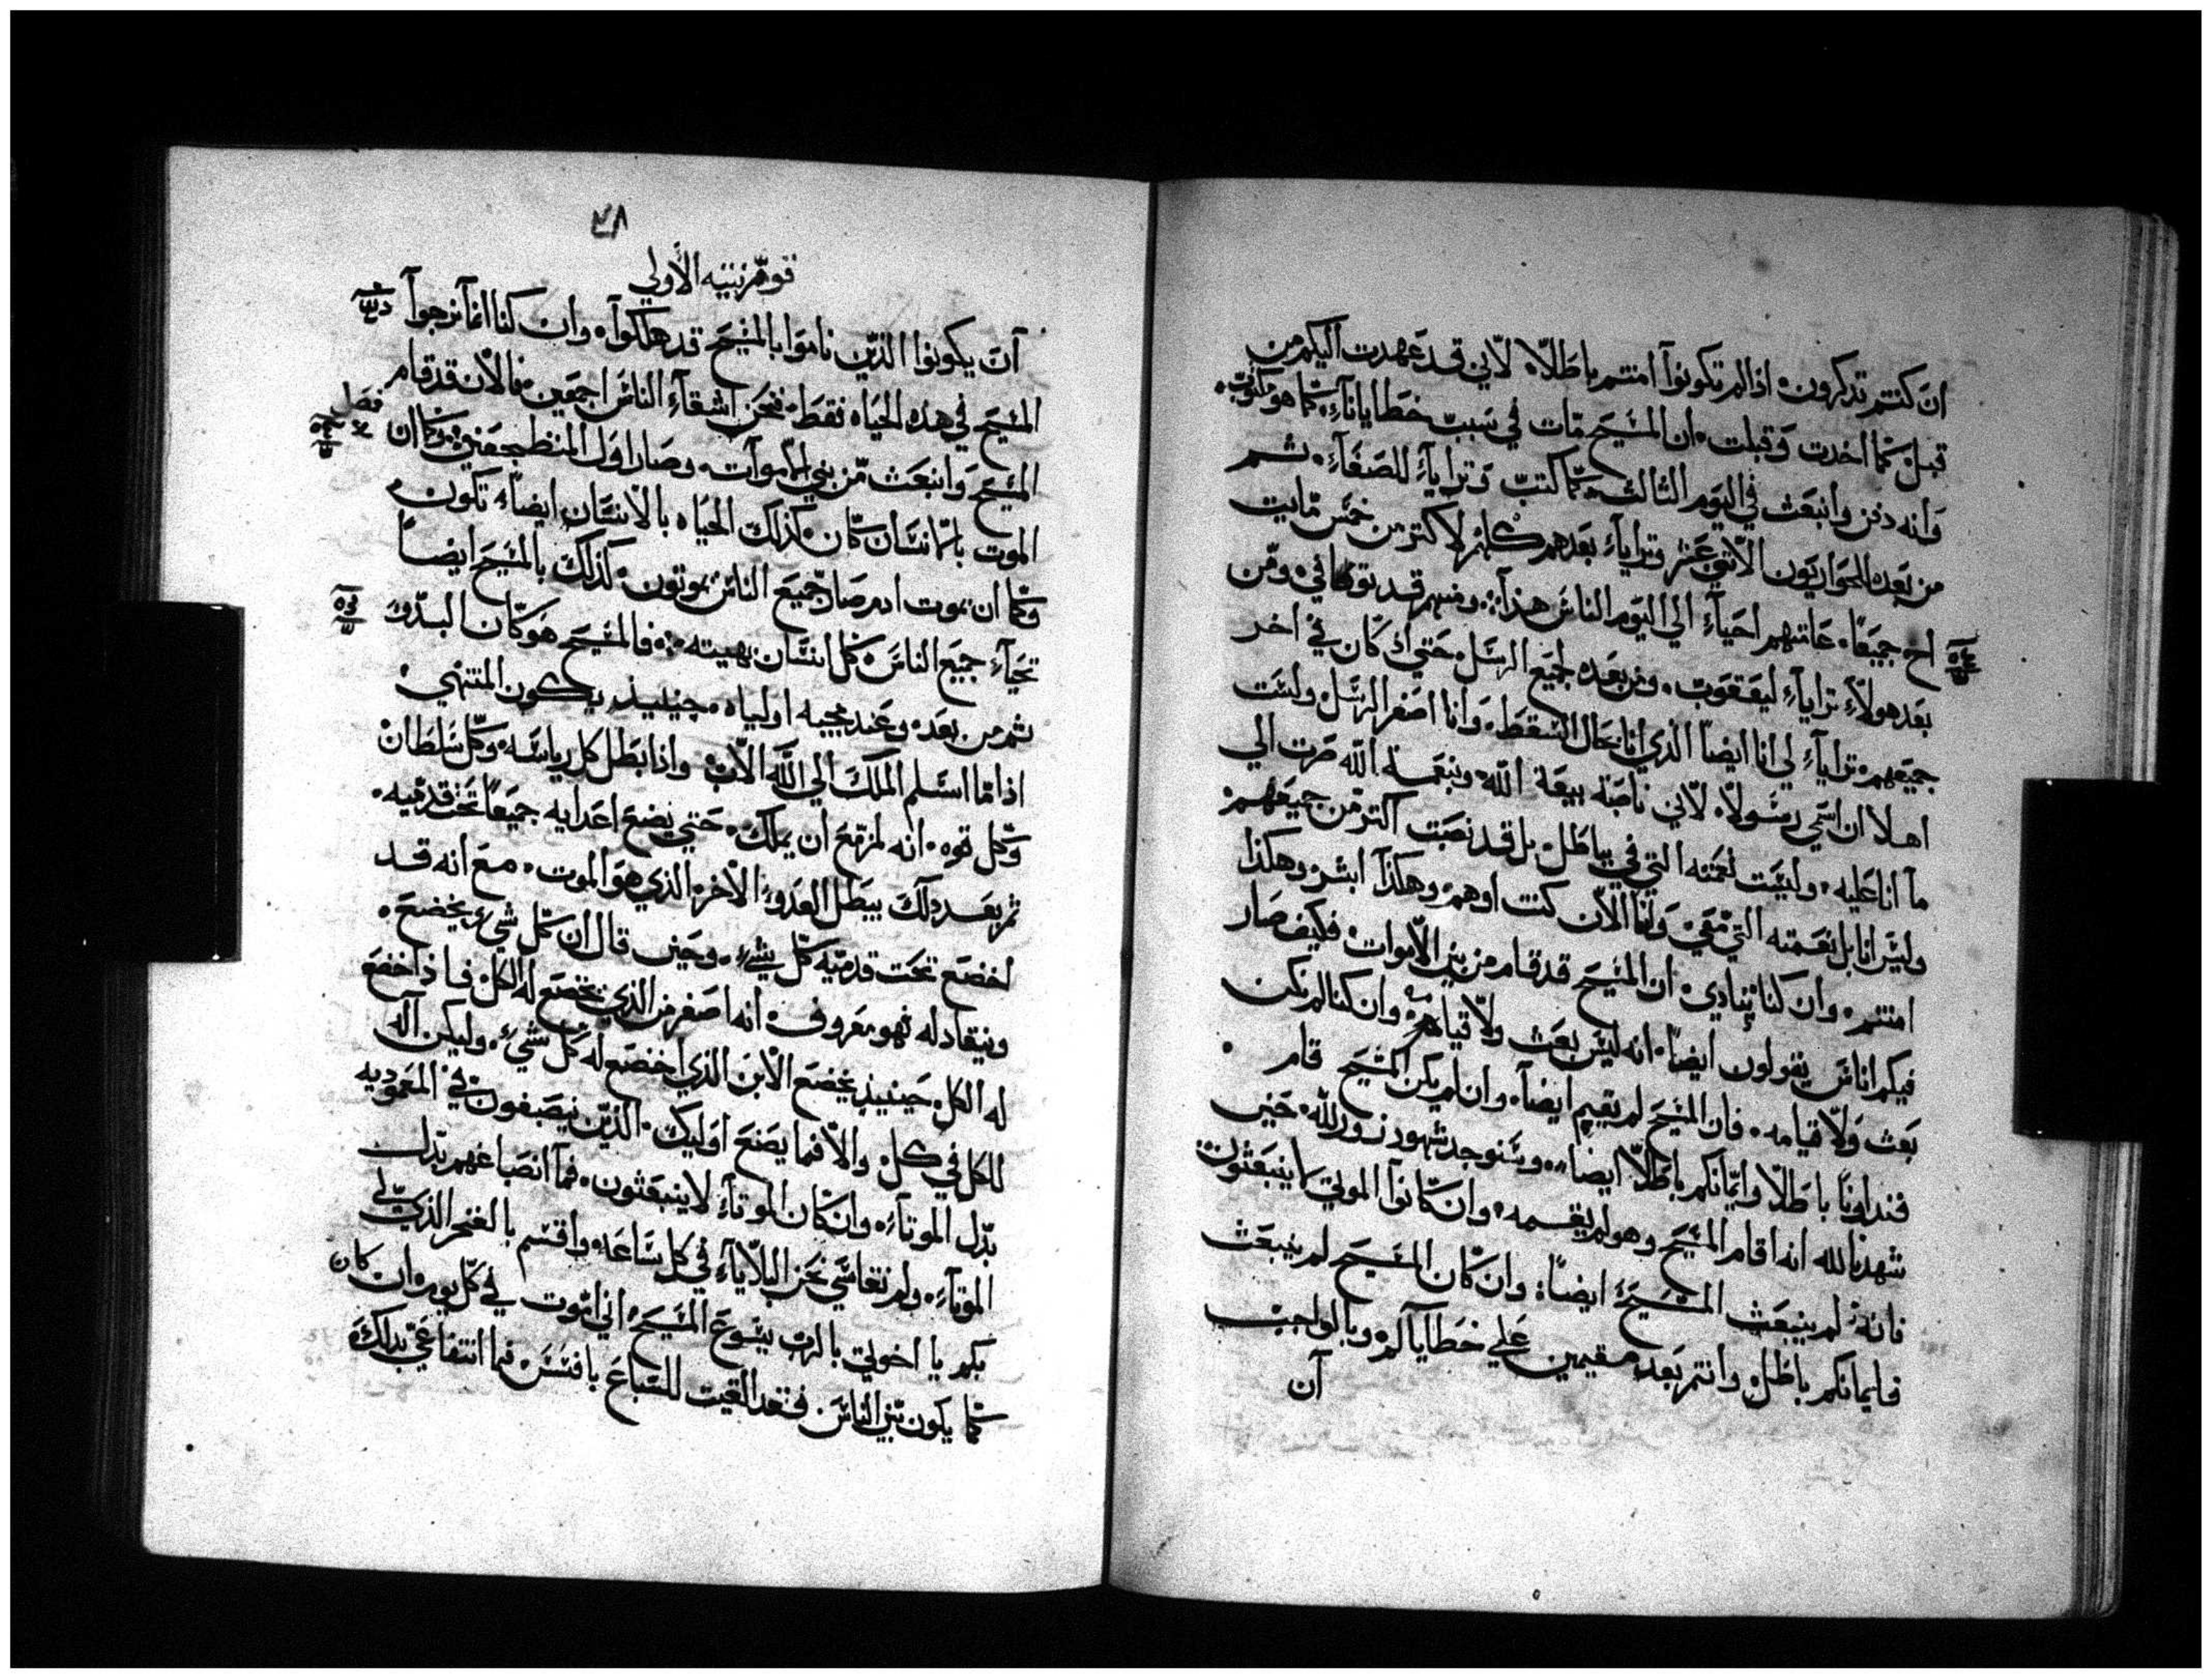 ان كنتم تدكرون. اذا لم تكونوا آمنتم باطلاً. لاني قد عهدت اليكم من
قبل كما اخدت وقبلت. ان المسيح مات في سبب خطايانا. كما هو مكتوب.
وانه دفن وانبعث في اليوم الثالث كما كتب وترايا للصفاء. ثم
من بعده الحواريون الاتني عشر وترايا بعدهم كلهم لاكتر من خمس مايت
اخ جميعاً. عامتهم احياء الي اليوم الناس هذا. ومنهم قد توفا في ومن
بعد هولاء ترايا ليعقوب. ومن بعده لجميع الرسل. حتي ان كان في اخر
جميعهم. ترايا لي انا ايضاً الذي انا بحال السقط. وانا اصغر الرسل ولست
اهلا ان اسمي رسولا. لاني ناصبة بيعة الله. وبنعمة الله صرت الي
ما انا عليه. وليست نعمته التي في بباطل. بل قد نصبت اكتر من جميعهم
وليس انا بل نعمته التي معي. وانا الان كنت اوهم. وهكذا ابشر وهكذا
امنتم. وان كنا ننادي. ان المسيح قد قام من بين الاموات. فكيف صار
فيكم اناس يقولون ايضاً. انه ليس بعث ولا قيامه. وان كنا لم نكن
بعث ولا قيامه. فان المسيح لم يقيم ايضاً. وان لم يكن المسيح قام
فنداونا باطلا وايمانكم باطلا ايضاً. وسنوجد شهود زور لله. حين
شهدنا لله انه اقام المسيح وهو لم يقمه. وان كانوا الموتي لا ينبعثون
فانه لم ينبعث المسيح ايضاً. وان كان المسيح لم ينبعث
فايمانكم باطل. وانتم بعد مقيمين علي خطاياكم. وبالواجب
ان
٤٨
قورنتيه الاولي
ان يكونوا الذين ناموا بالمسيح قد هلكوا. وان كنا انما نرجوا
المسيح في هده الحياه فقط. فنحن اشقاء الناس اجمعين. فالان قد قام
فصل
المسيح وانبعث من بين الاموات. وصار اول المنضجعين. وكما ان
الموت بانسان كان. كذلك الحياه بالانسان ايضاً تكون.
وكما ان بموت ادم صار جميع الناس يموتون. كذلك بالمسيح ايضاً
تحيا جميع الناس. كل انسان بهيته. فالمسيح هو كان البدو.
ثم من بعده وعند مجيه اولياه. حينيذ يكون المنتهي
اذا ما اسلم الملك الي الله الاب. واذا بطل كل رياسه وكل سلطان
وكل قوه. انه لمزمع ان يملك. حتي يضع اعدايه جميعاً تحت قدميه.
ثم بعد دلك يبطل العدو الاخر الذي هو الموت. مع انه قد
اخضع تحت قدميه كل شيء. وحين قال ان كل شيء يخضع.
وينقاد له فهو معروف. انه اصغر من الذي يخضع له الكل. فاذا خضع
له الكل. حينيذ يخضع الابن الذي اخضع له كل شيء. وليكن الله
للكل في كل. والا فما يصنع اوليك. الذين ينصبغون في المعموديه
بدل الموتاء. وان كان الموتاء لا ينبعثون. فما انصباغهم بدل
الموتاء. ولم نقاسي نحن البلايا في كل ساعه. واقسم بالفخر الذي لي
بكم يا اخوتي بالرب يسوع المسيح اني اموت في كل يوم. ان كان
كما يكون بين الناس فقد القيت للسباع بافسس. فما انتفاعي بدلك